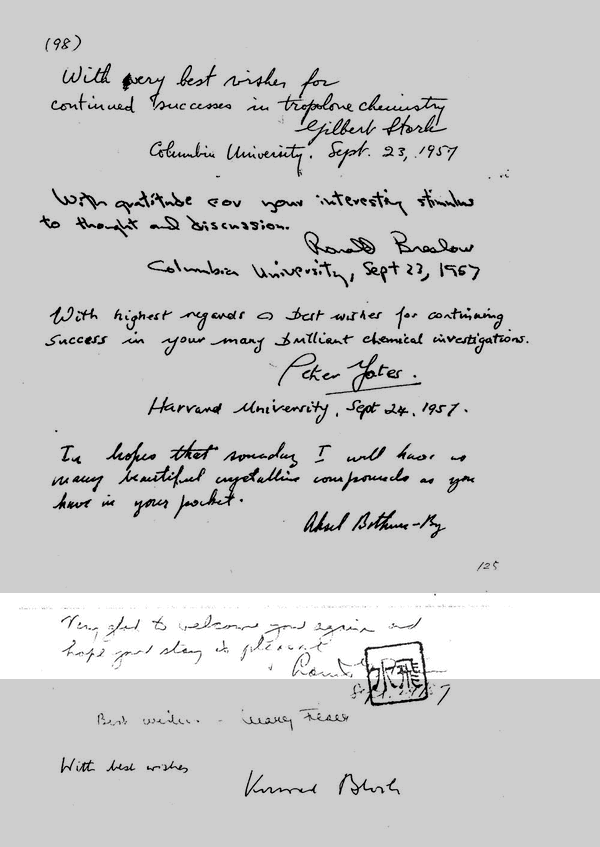 (98)
With very best wishes for
continued successes in tropolone chemistry
Gilbert Stork
Columbia University. Sept. 23, 1957
With gratitude for your interesting stimulus
to thought and discussion.
Ronald Breslow
Columbia University, Sept 23, 1957
With highest regards & best wishes for continuing
success in your many brilliant chemical investigations.
Peter Yates.
Harvard University, Sept 24, 1957.
In hopes that someday I will have as
many beautiful crystalline compounds as you
have in your pocket.
Aksel Bothner-By
125
Very glad to welcome you again and
hope your stay is pleasant
57
Best wishes - Mary Fieser
With best wishes
Konrad Bloch